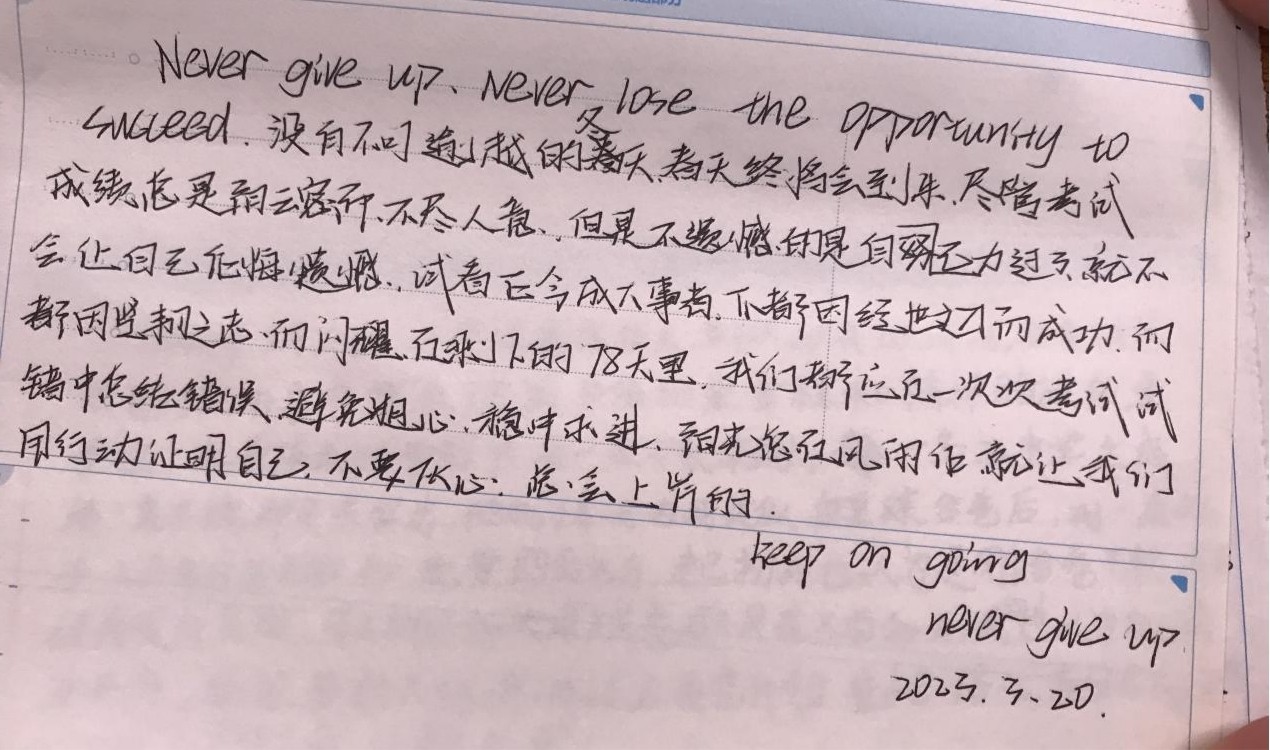 Never give up、Never lose the opportunity to
succeed. 没有不可逾越的冬天,春天终将会到来,尽管考试
成绩总是阴云密布、不尽人意,但是不遗憾的是自己努力过了,就不
会让自己后悔遗憾,试看古今成大事者,不都因经世之才而成功,而
都因坚韧之志而闪耀,在剩下的78天里,我们都应在一次次考试试
错中总结错误,避免粗心,稳中求进,阳光总在风雨后,就让我们
用行动证明自己,不要灰心,总会上岸的.
keep on going
never give up
2023.3.20.